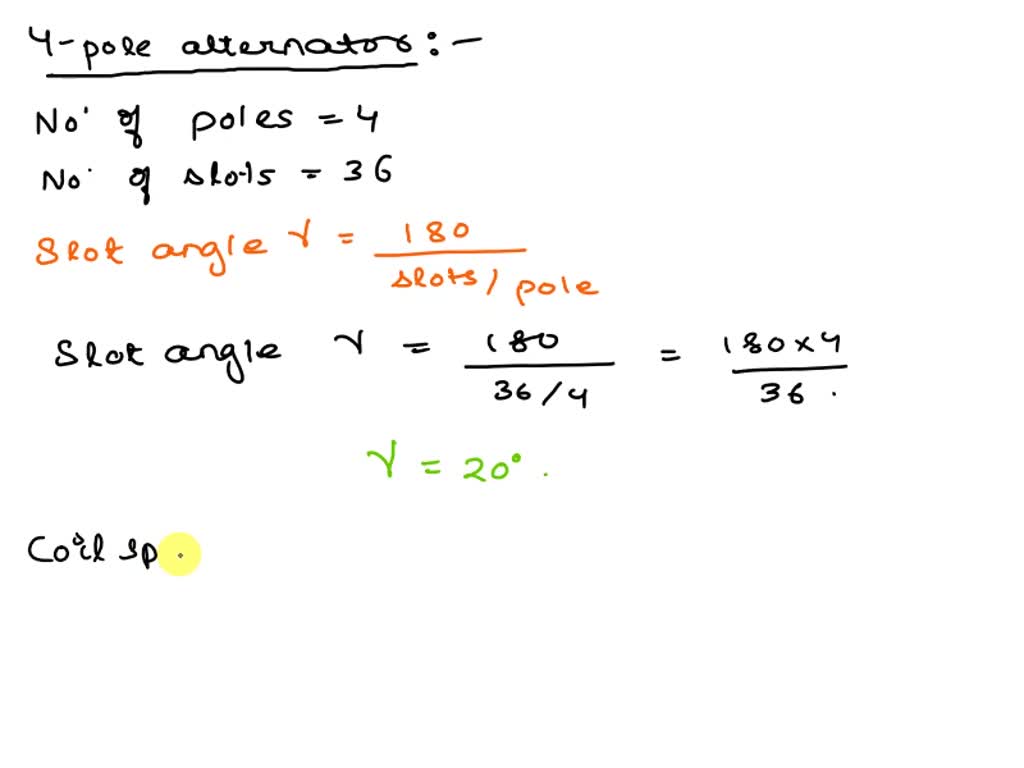 4-pole alternator :-
No. of poles = 4
No. of slots = 36
Slot angle γ = 180 / slots/pole
Slot angle γ = 180 / 36/4 = 180×4 / 36.
γ = 20°.
Coil sp